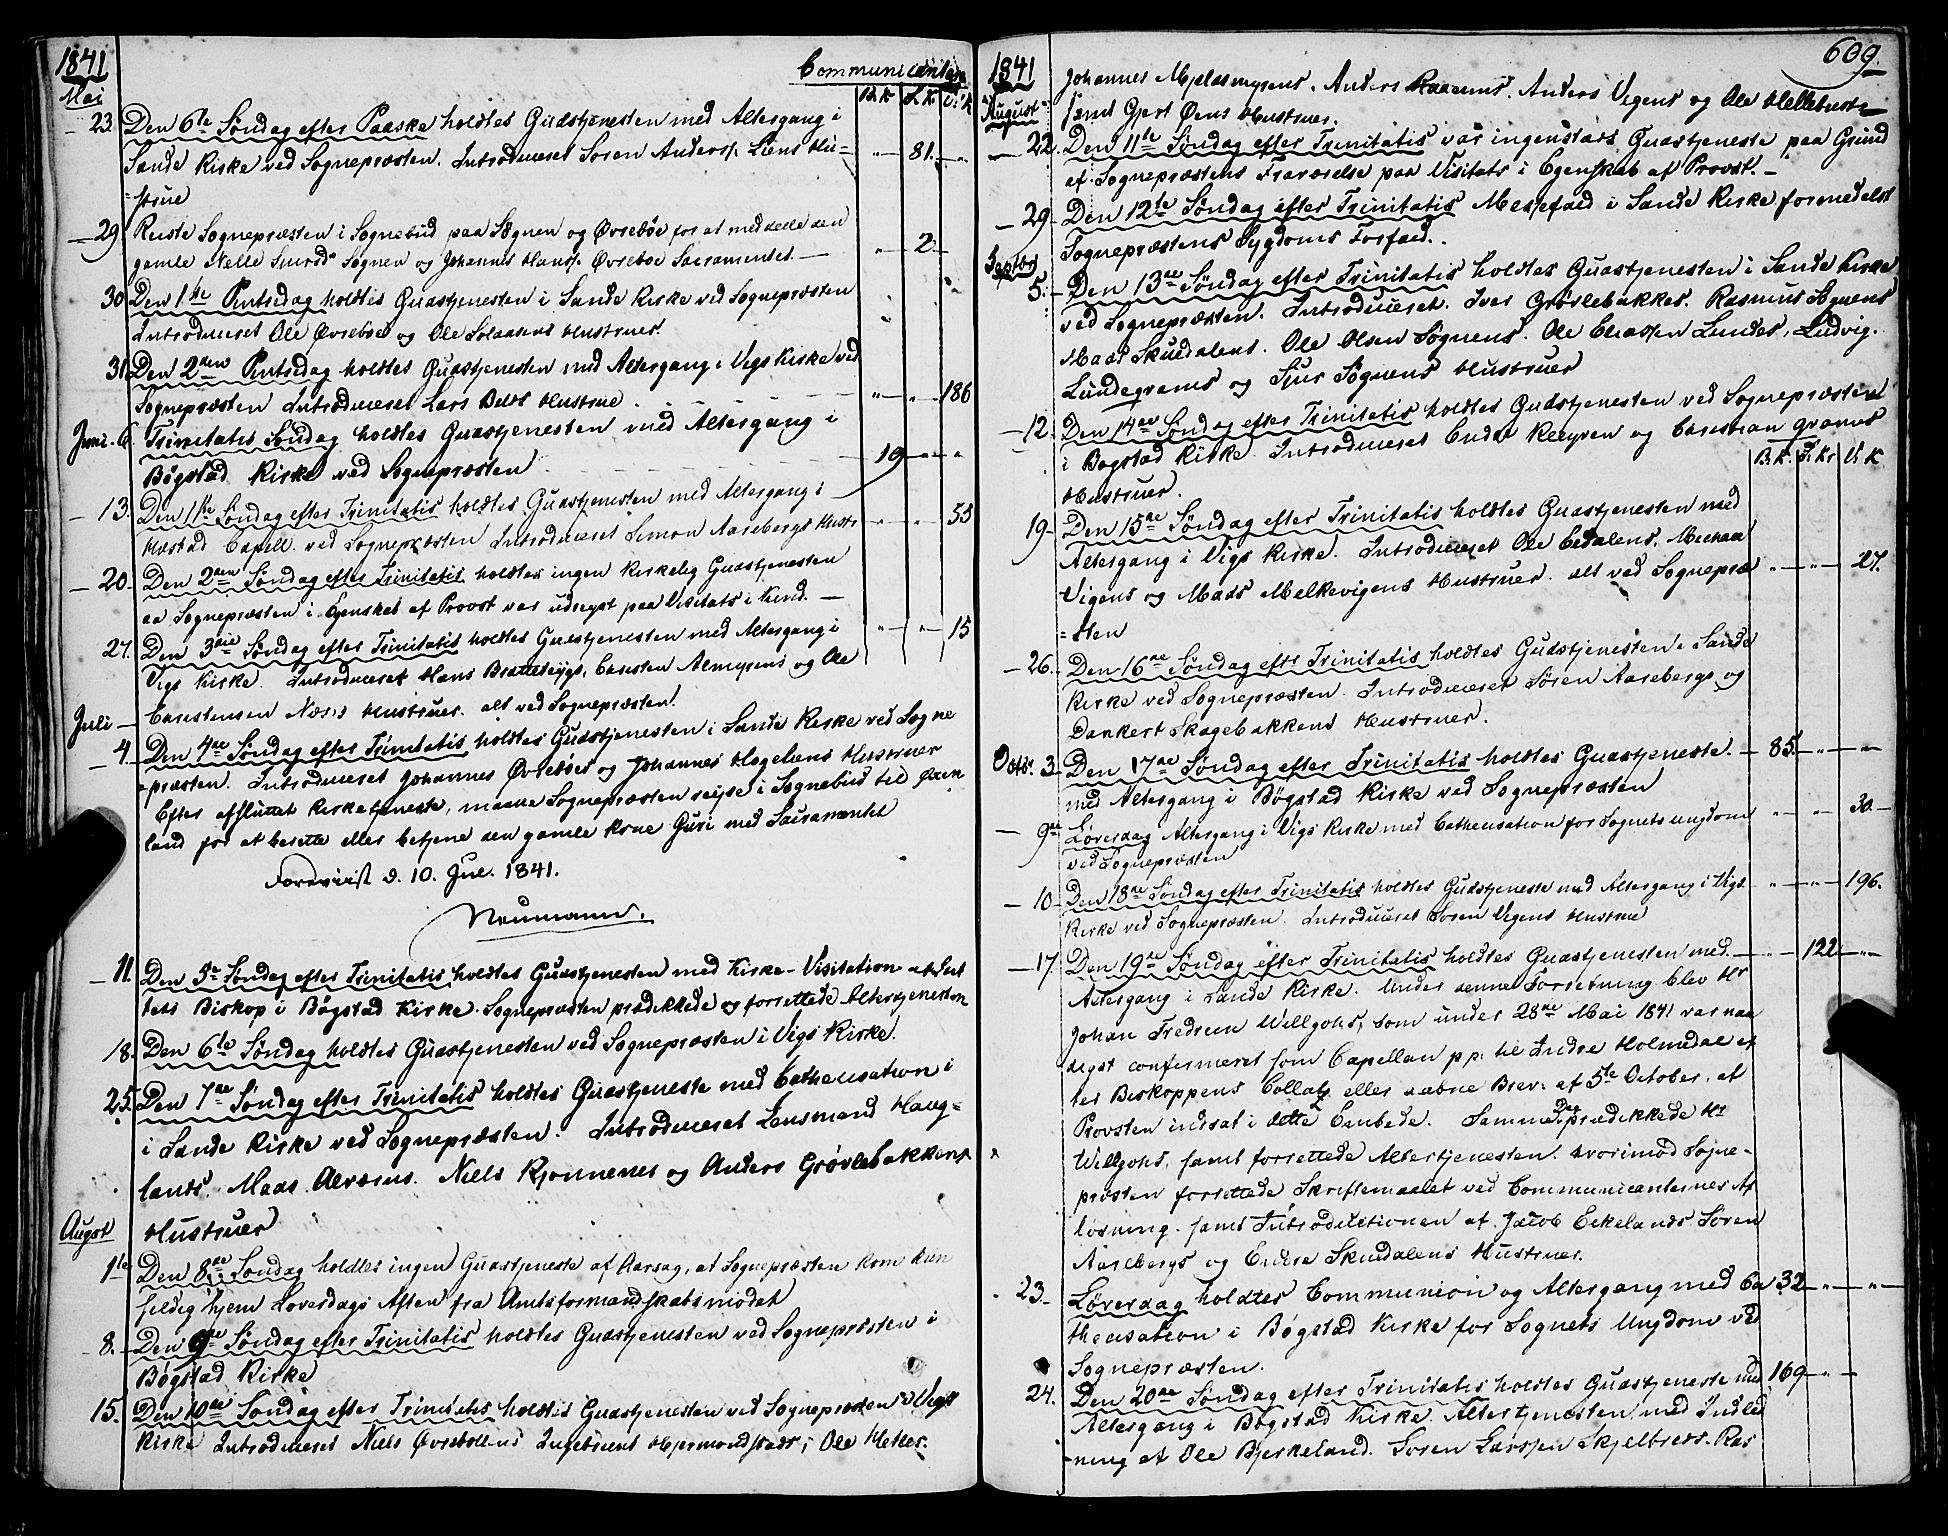 1841
Communicantere
Mai
B.K. S.K. V.K.
23. Den 6te Søndag efter Paaske holdtes Gudstjenesten med Altergang i
Sande Kirke ved Sognepræsten. Introduceret Soren Anders. Liens Hu- " 81. "
=strue
29 Reiste Sognepræsten i Sognebud paa Sognen og Øvrebøe for at meddele den
gamle Nelle Sognen og Johannes Hans. Øvrebøe Sacramentet. — " 2
30. Den 1ste Pintsdag holdtes Gudstjenesten i Sande Kirke ved Sognepræsten
Introduceret Ole Øvrebøes og Ole Hustruer.
31. Den 2den Pintsdag holdtes Gudstjenesten med Altergang i Vigs Kirke ved
Sognepræsten Introduceret Lars Hustrue. " " 186
Juni. 6. Trinitatis Søndag holdtes Gudstjenesten med Altergang i
Bøgstad Kirke ved Sognepræsten. 19 " "
13. Den 1ste Søndag efter Trinitatis holdtes Gudstjenesten med Altergang i
Hæstad Capell ved Sognepræsten Introduceret Simon Aarebergs Hustr " " 53
20. Den 2den Søndag efter Trinitatis holdtes ingen Kirkelig Gudstjenesten
da Sognepræsten i Egenskab af Provst var udreyst paa Visitats i Kind. —
27. Den 3die Søndag efter Trinitatis holdtes Gudstjenesten med Altergang i " " 15
Vigs Kirke. Introduceret Hans Carsten Almyrens og Ole
Carstensen Hustruer. alt ved Sognepræsten.
Juli —
4. Den 4de Søndag efter Trinitatis holdtes Gudstjenesten i Sande Kirke ved Sogne
-præsten. Introduceret Johannes Øvrebøes og Johannes Hustruer
Efter afsluttet Kirketjeneste, maatte Sognepræsten reise i Sognebud til
land for at berette eller betjene den gamle Kone Guri med Sacramentet
d. 10. Jul. 1841.
Neumann.
11. Den 5te Søndag efter Trinitatis holdtes Gudstjenesten med Kirke-Visitation af Stif
tets Biskop i Bøgstad Kirke. Sognepræsten prædikkede og forrettede Altertjenesten
18. Den 6te Søndag holdtes Gudstjenesten ved Sognepræsten i Vigs Kirke.
25. Den 7de Søndag efter Trinitatis holdtes Gudstjeneste med Cathecisation i
i Sande Kirke ved Sognepræsten. Introduceret Lensmand Haug=
lands. Mads Niels Kjonnenes og Anders Grøvlebakkens
Hustruer
August
1ste Den 8de Søndag holdtes ingen Gudstjeneste af Aarsag, at Sognepræsten kom
sildig hjem Løverdags Aften fra Amtsformandskabsmødet
8. Den 9de Søndag efter Trinitatis holdtes Gudstjenesten ved Sognepræsten i
Bøgstad Kirke
15. Den 10de Søndag efter Trinitatis holdtes Gudstjenesten ved Sognepræsten i Vigs
Kirke Introduceret Niels Ole
609.
1841
Johannes Mjelasmyrens, Anders Anders Vigens og Ole Hellebust
samt Gjert Øens Hustruer.
August
22. Den 11te Søndag efter Trinitatis var ingensteds Gudstjeneste paa Grund
af Sognepræstens Fraværelse paa Visitats i Egenskab af Provst. —
29. Den 12te Søndag efter Trinitatis Messefald i Sande Kirke formedelst
Sognepræstens Sygdoms Forfald.
Septbr
5. Den 13de Søndag efter Trinitatis holdtes Gudstjenesten i Sande Kirke
ved Sognepræsten. Introduceret. Iver Grøvlebakkes. Rasmus Sognens
Mads Skuedalens. Ole Olsen Sognens. Ole Lundes, Ludvig.
Lundegrems og Sjur Sognens Hustruer
12. Den 14de Søndag efter Trinitatis holdtes Gudstjenesten ved Sognepræsten
i Bøgstad Kirke. Introduceret Endre og Christian
Hustruer.
B.K. S.Kr V.K
19. Den 15de Søndag efter Trinitatis holdtes Gudstjenesten med
Altergang i Vigs Kirke. Introduceret Ole Michael
Vigens og Mads Melkevigens Hustruer. alt ved Sognepræ " " 27.
=sten
26. Den 16de Søndag eftr Trinitatis holdtes Gudstjenesten i Sande
Kirke ved Sognepræsten. Introduceret Søren Aarebergs og
Dankert Skagebakkens Hustruer.
Octbr. 3. Den 17de Søndag efter Trinitatis holdtes Gudstjeneste. 85. " "
med Altergang i Bøgstad Kirke ved Sognepræsten
9de Løverdag Altergang i Vigs Kirke med Cathecisation for Sognets Ungdom " " 30.
ved Sognepræsten
10. Den 18de Søndag efter Trinitatis holdtes Gudstjeneste med Altergang i Vigs " " 196.
Kirke ved Sognepræsten. Introduceret Soren Vigens Hustrue
17. Den 19de Søndag efter Trinitatis holdtes Gudstjenesten med " 122 "
Altergang i Sande Kirke. Under denne Forretning blev Hr
Johan Fredrem Wellgohs, som under 28de Mai 1841 var naa
digst confirmeret som Capellan p.p. til Indre Holmedal ef
ter Biskoppens Collatz eller aabne Brev af 5te October, af
Provsten indsat i dette Embede. Samme Dag prædikkede Hr
Wellgohs, samt forrettede Altertjenesten. hvorimod Sogne-
præsten forrettede Skriftemaalet ved Communicanternes Af
løsning. samt Introductionen af Jacob Eikelands Soren
Aarebergs og Endre Skuedalens Hustruer.
23. Løverdag holdtes Communion og Altergang med Ca 32 " "
thecisation i Bøgstad Kirke for Sognets Ungdom ved
Sognepræsten.
24. Den 20de Søndag efter Trinitatis holdtes Gudstjeneste med 169 " "
Altergang i Bøgstad Kirke. Altertjenesten med Indled
-ning af Ole Bjerkeland. Soren Larssen Skjelbreds. Ras